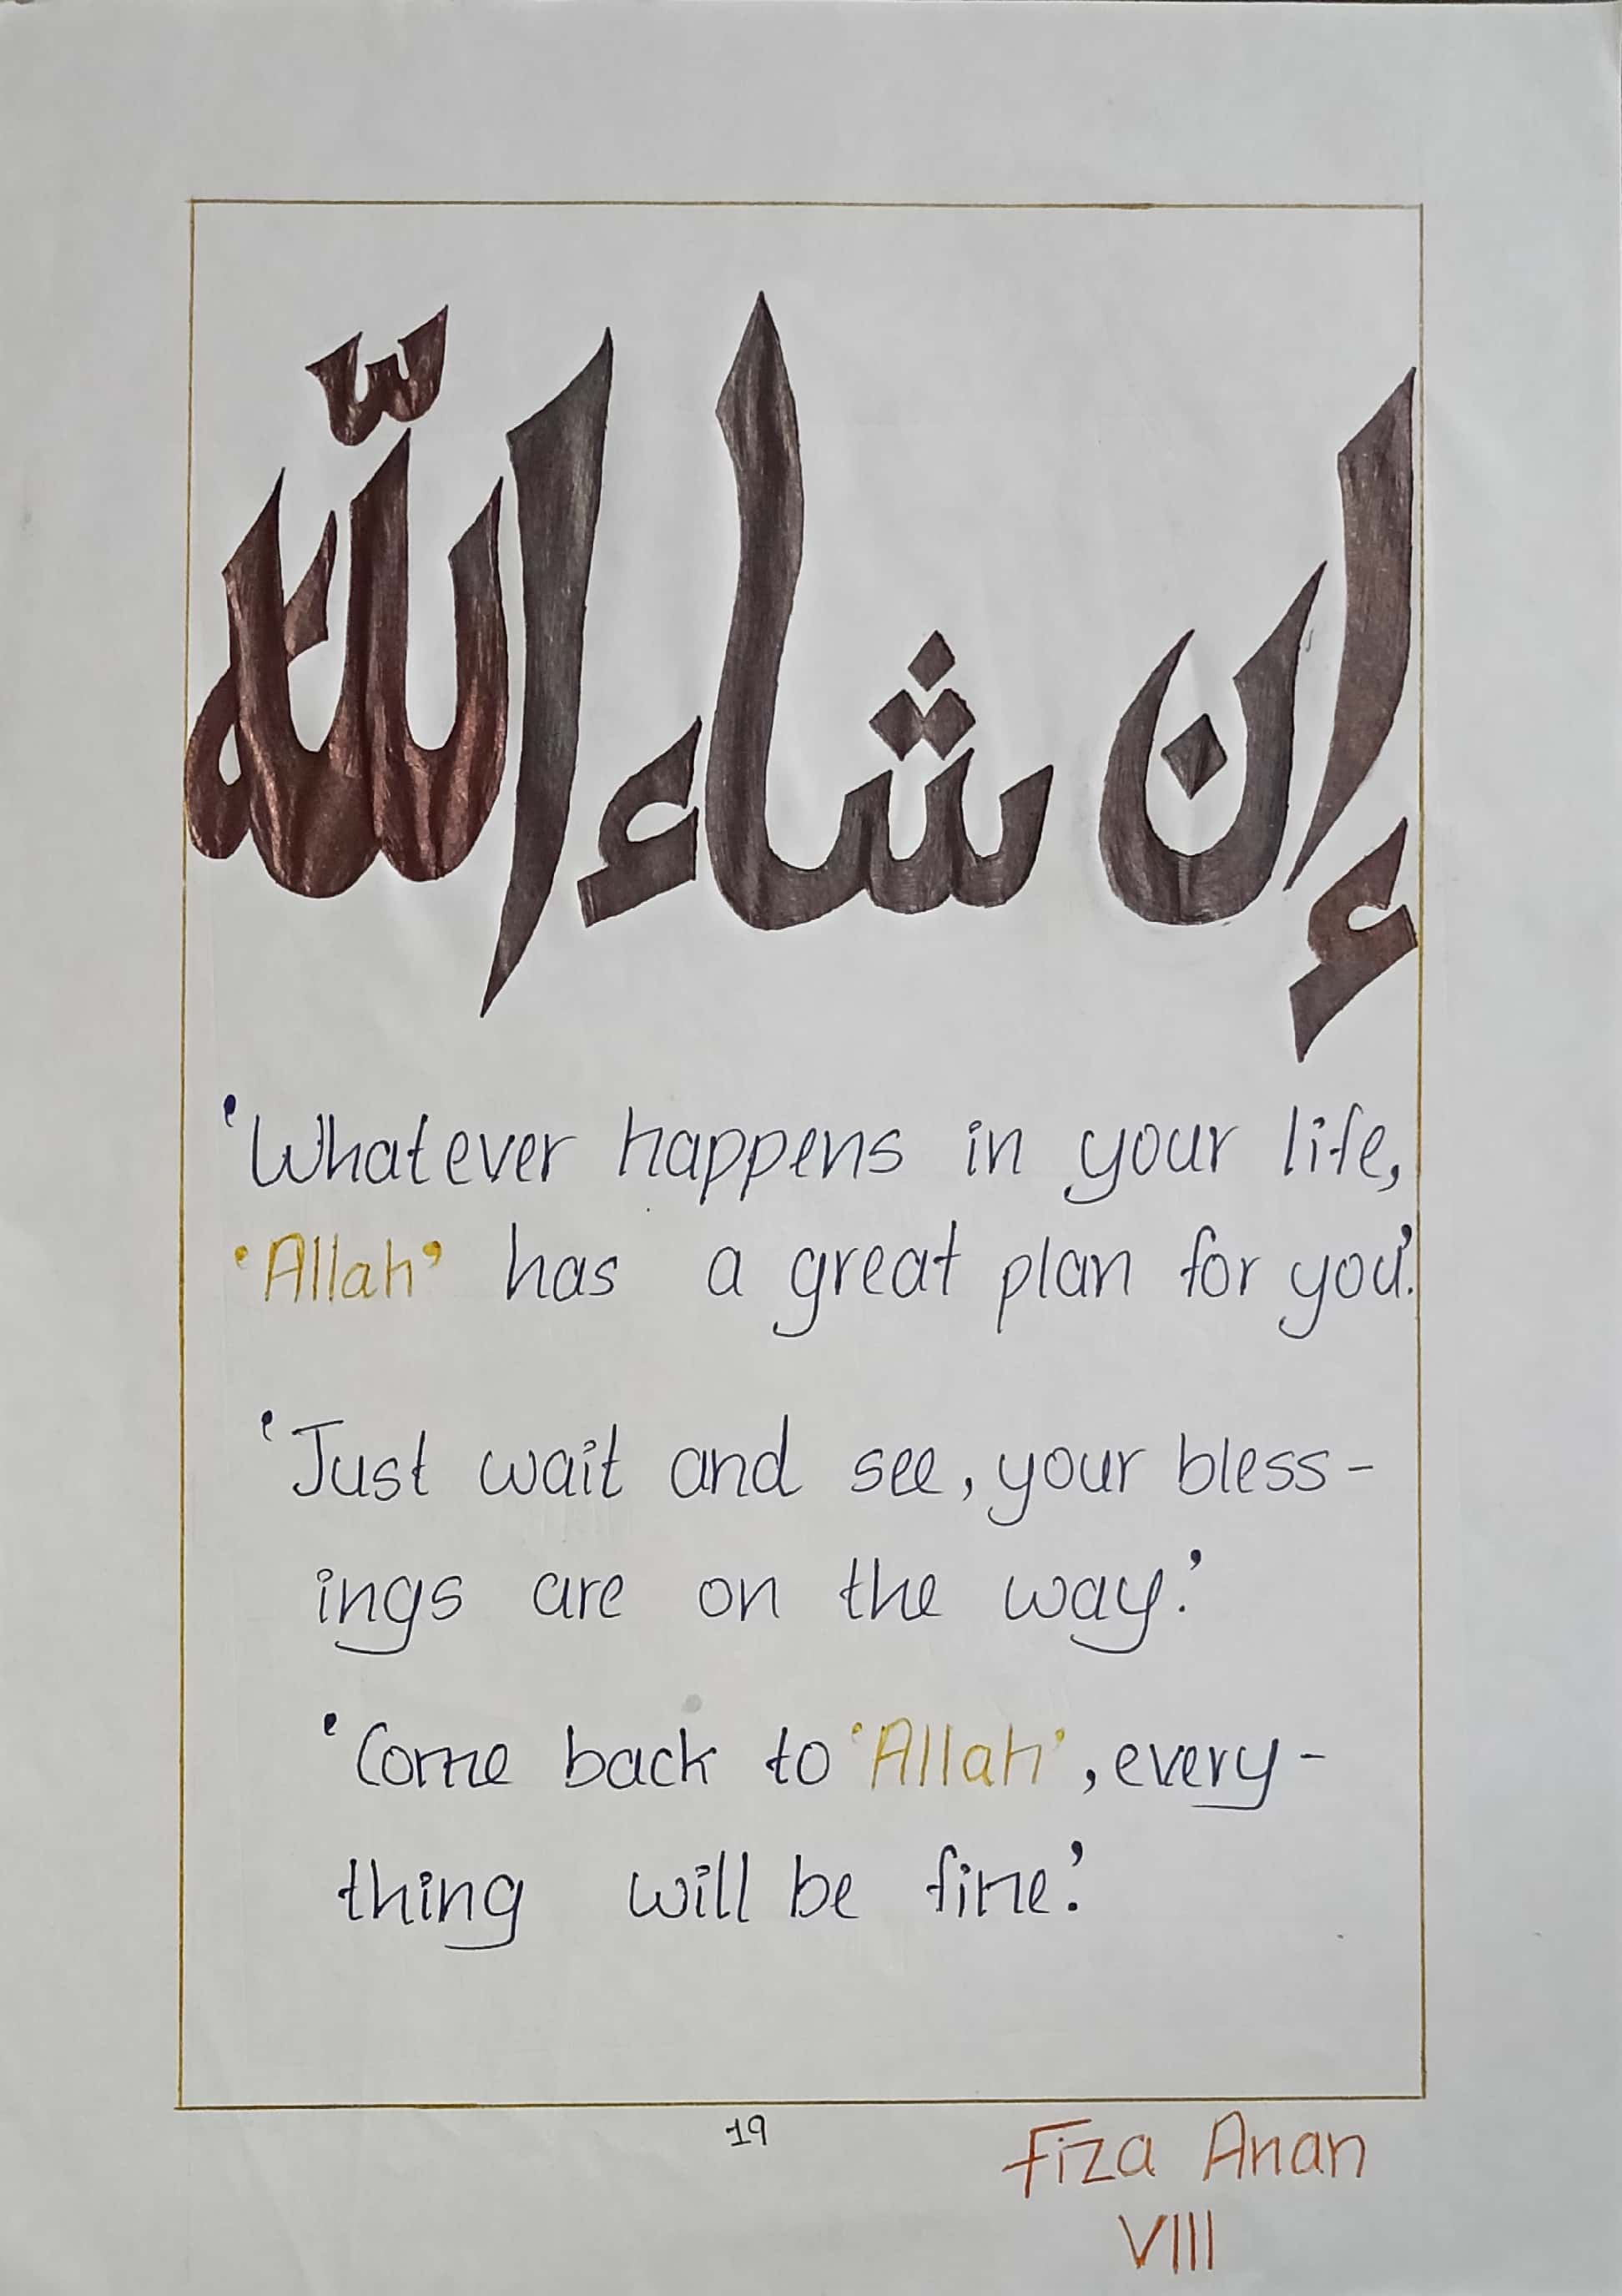 إن شاء اللّٰه
'Whatever happens in your life,
'Allah' has a great plan for you'.
'Just wait and see, your bless-
ings are on the way.'
'Come back to 'Allah', every-
thing will be fine.'
19
Fiza Anan
VIII